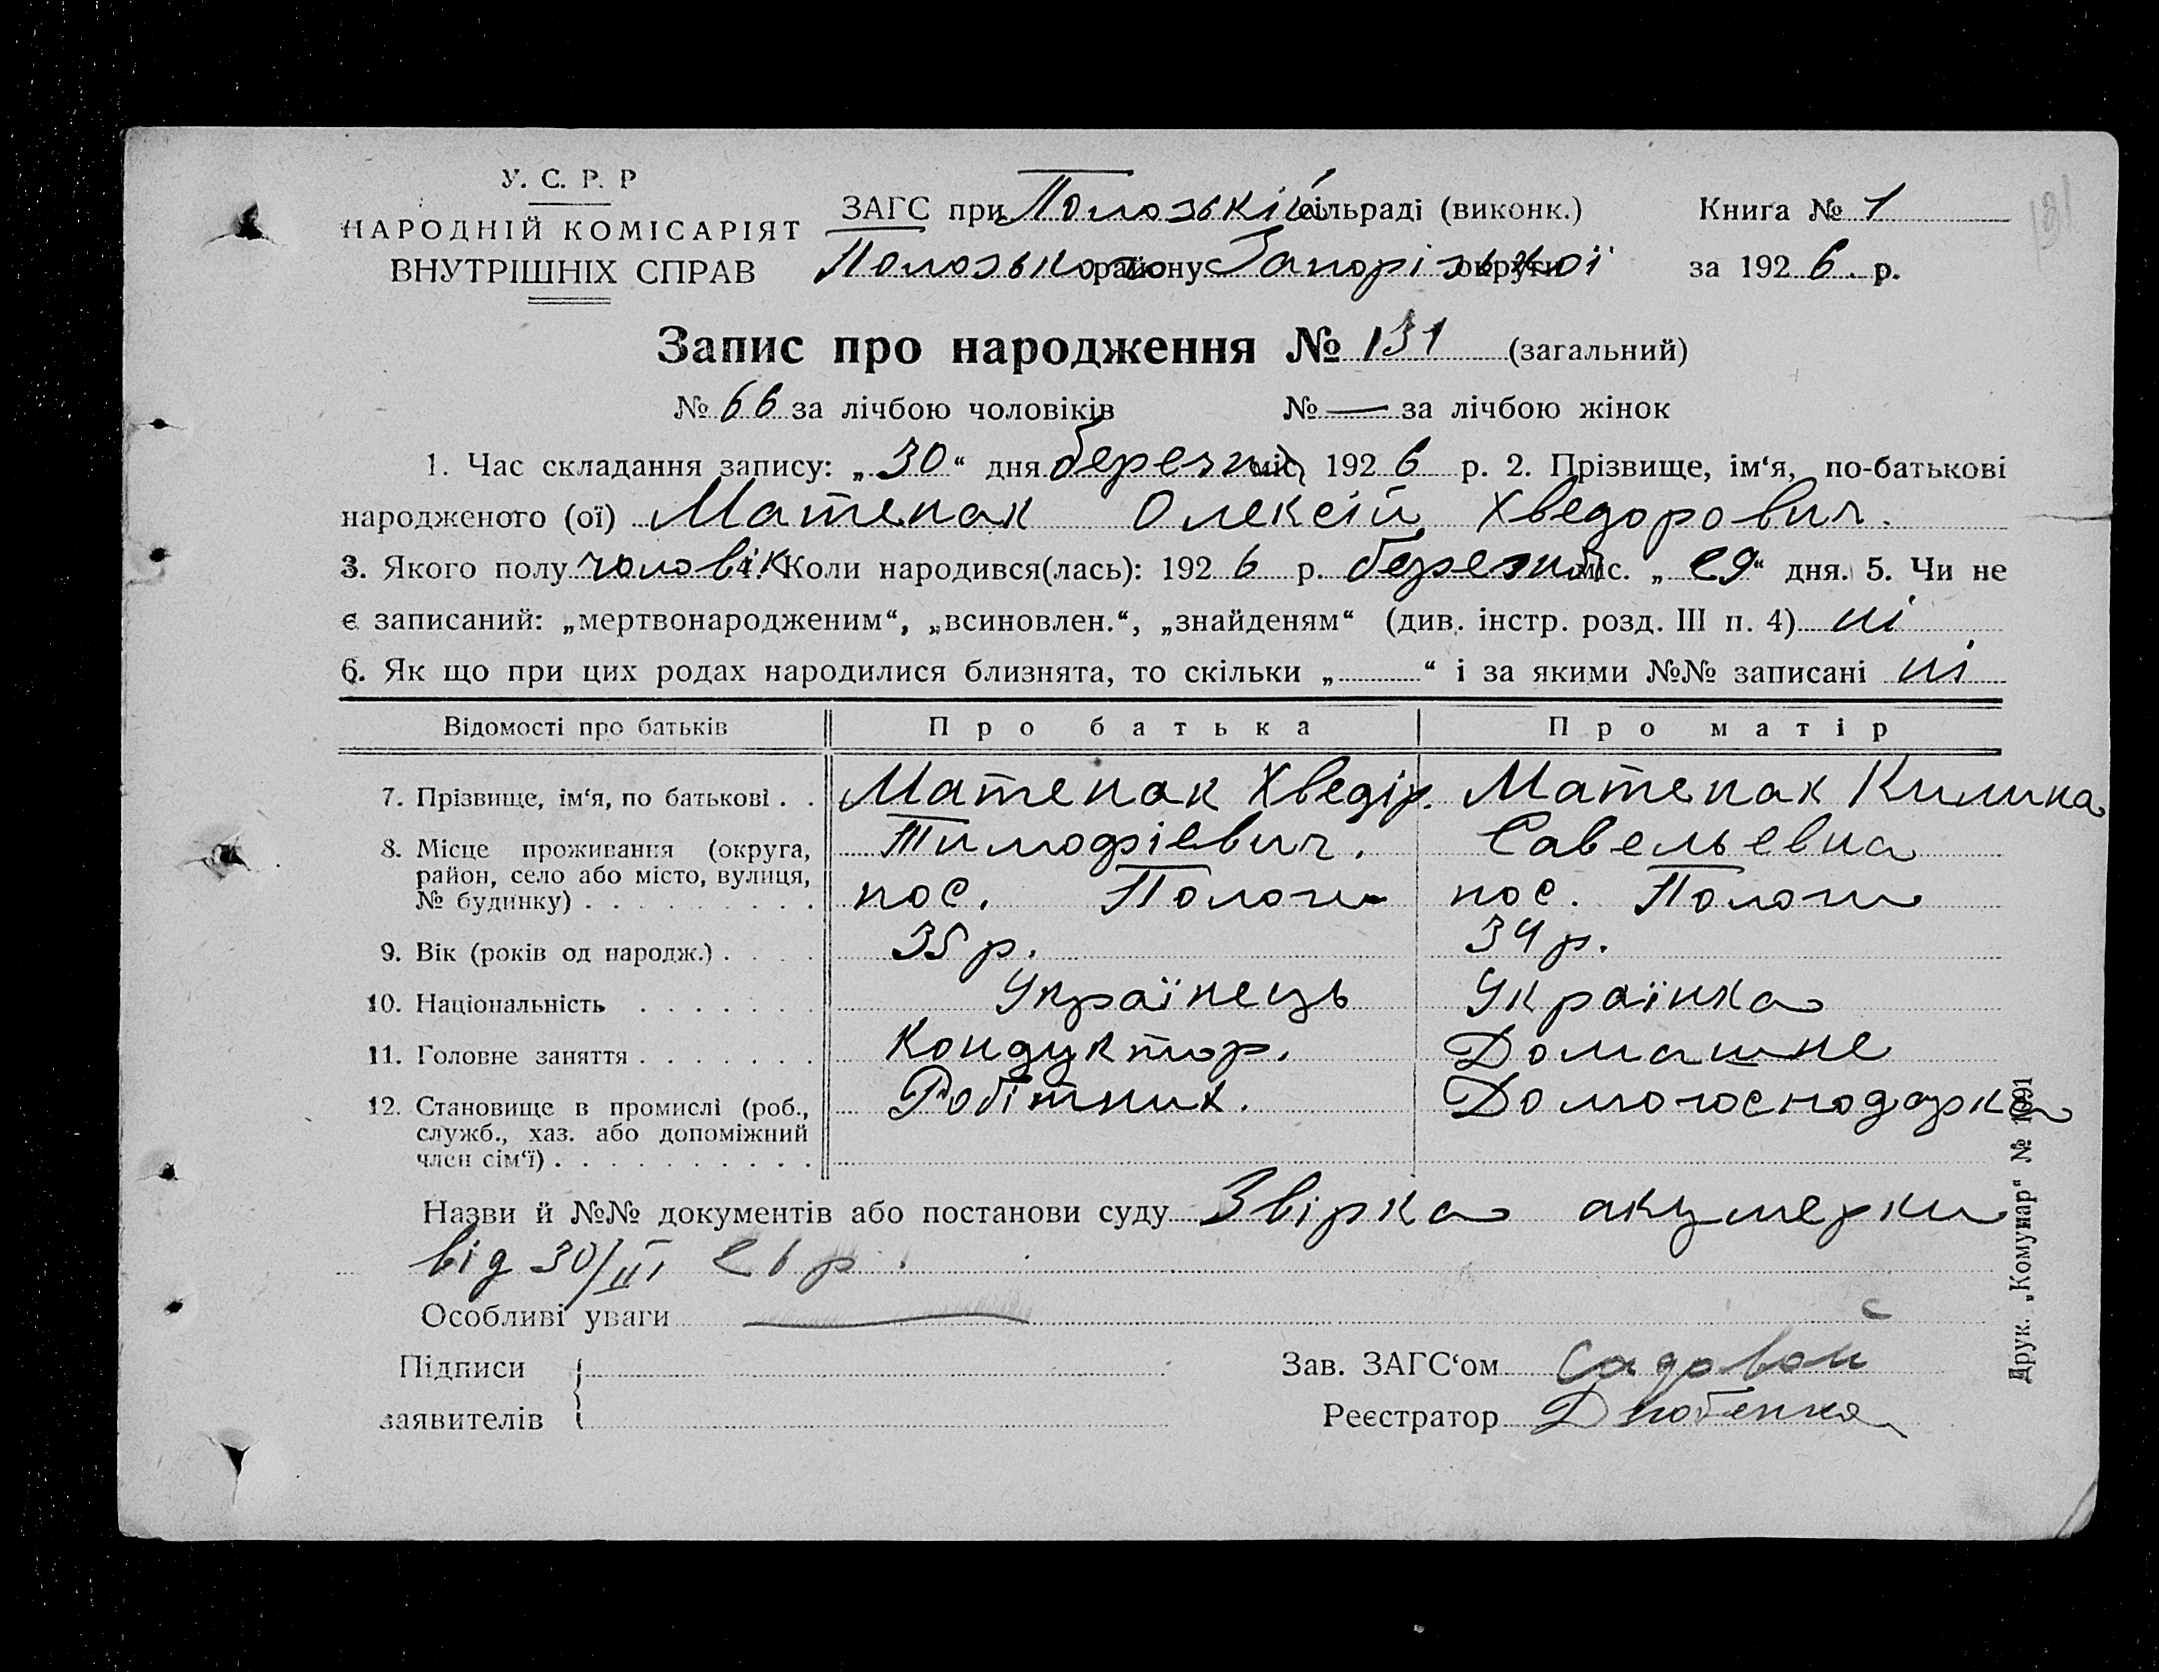 У. С. Р. Р
НАРОДНІЙ КОМІСАРІЯТ
ВНУТРІШНІХ СПРАВ
ЗАГС при Полозькій сільраді (виконк.)
Полозького району Запорізької округи
Книга № 1
за 1926 р.
131
Запис про народження № 131 (загальний)
№ 66 за лічбою чоловіків № — за лічбою жінок
1. Час складання запису: „30“ дня березня міс. 1926 р. 2. Прізвище, ім‘я, по-батькові
народженого (ої) Матенак Олексій Хведорович.
3. Якого полу чоловік 4. Коли народився(лась): 1926 р. березня міс. „29“ дня. 5. Чи не
є записаний: „мертвонародженим“, „всиновлен.“, „знайденям“ (див. інстр. розд. III п. 4) ні
6. Як що при цих родах народилися близнята, то скільки „ “ і за якими №№ записані ні
Відомості про батьків Про батька Про матір
7. Прізвище, ім‘я, по батькові . . Матенак Хведір. Матенак Килина
Тимофієвич. Савельевна
8. Місце проживання (округа,
район, село або місто, вулиця,
№ будинку) . . . . . . . . . пос. Пологи пос. Пологи
9. Вік (років од народж.) . . . . 35 р. 34 р.
10. Національність . . . . . . . Українець Українка
11. Головне заняття . . . . . . . Кондуктор. Домашне
12. Становище в промислі (роб., Робітник. Домогосподарка
служб., хаз. або допоміжний
член сім‘ї) . . . . . . . . . .
Назви й №№ документів або постанови суду Звірка акушерки
від 30/III 26 р.
Особливі уваги —
Підписи
заявителів
Зав. ЗАГС‘ом Садовой
Реєстратор
Друк. „Комунар“ № 1091